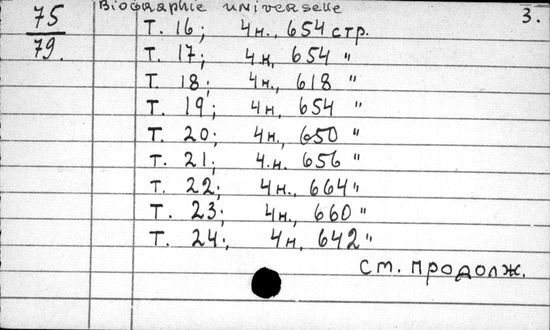 75
79.
Biographie universelle 3.
Т. 16; 4н., 654 стр.
Т. 17; 4н, 654 "
Т. 18; 4н., 618 "
Т. 19; 4н, 654 "
Т. 20; 4н., 650 "
Т. 21; 4.н. 656 "
Т. 22; 4н., 664 "
Т. 23; 4н., 660 "
Т. 24; 4н, 642 "
см. продолж.